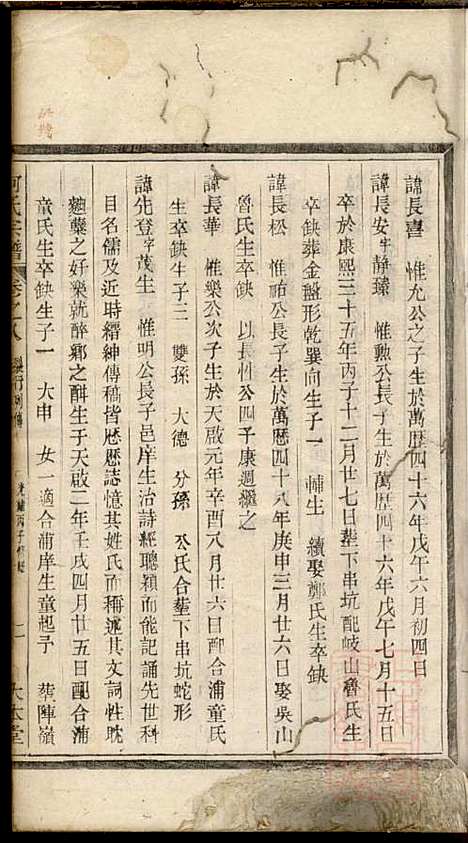 諱長喜　惟允公之子生於萬歷四十六年戊午六月初四日
諱長安字靜臻　惟勲公長子生於萬歷四十六年戊午七月十五日
卒於康熙三十五年丙子十二月廿七日塟下串坑配岐山魯氏生
卒缺葬金盤形乾巽向生子一　輔生　續娶鄭氏生卒缺
諱長松　惟祐公長子生於萬歷四十八年庚申三月廿六日娶吳山
魯氏生卒缺　以長性公四子康迴繼之
諱長華　惟樂公次子生於天啟元年辛酉八月廿六日配合浦童氏
生卒缺生子三　雙孫　大德　分孫　公氏合塟下串坑蛇形
諱先登字茂生　惟明公長子邑庠生治詩經聰穎而能記誦先世科
目名儒及近時縉紳傳稿皆歷歷誌憶其姓氏而稱述其文詞性耽
麯蘖之好樂就醉鄉之酣生于天啟二年壬戌四月廿五日配合浦
童氏生卒缺生子一　大申　女一適合浦庠生童起予　葬陣嶺
何氏宗譜　卷之八　行列傳　光緒丙子修　大本堂